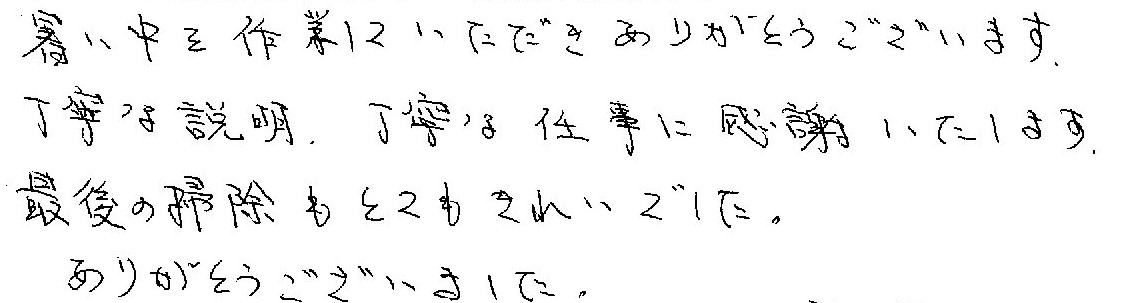 暑い中を作業していただきありがとうございます。
丁寧な説明、丁寧な仕事に感謝いたします。
最後の掃除もとてもきれいでした。
ありがとうございました。